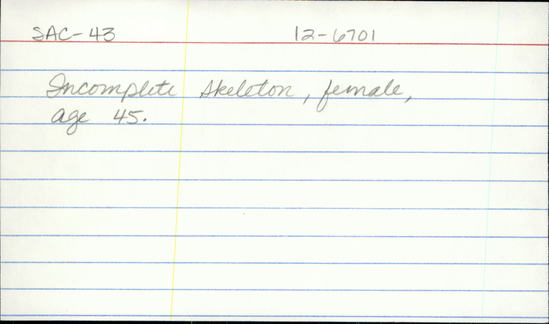 SAC-43 12-6701
Incomplete skeleton, female,
age 45.